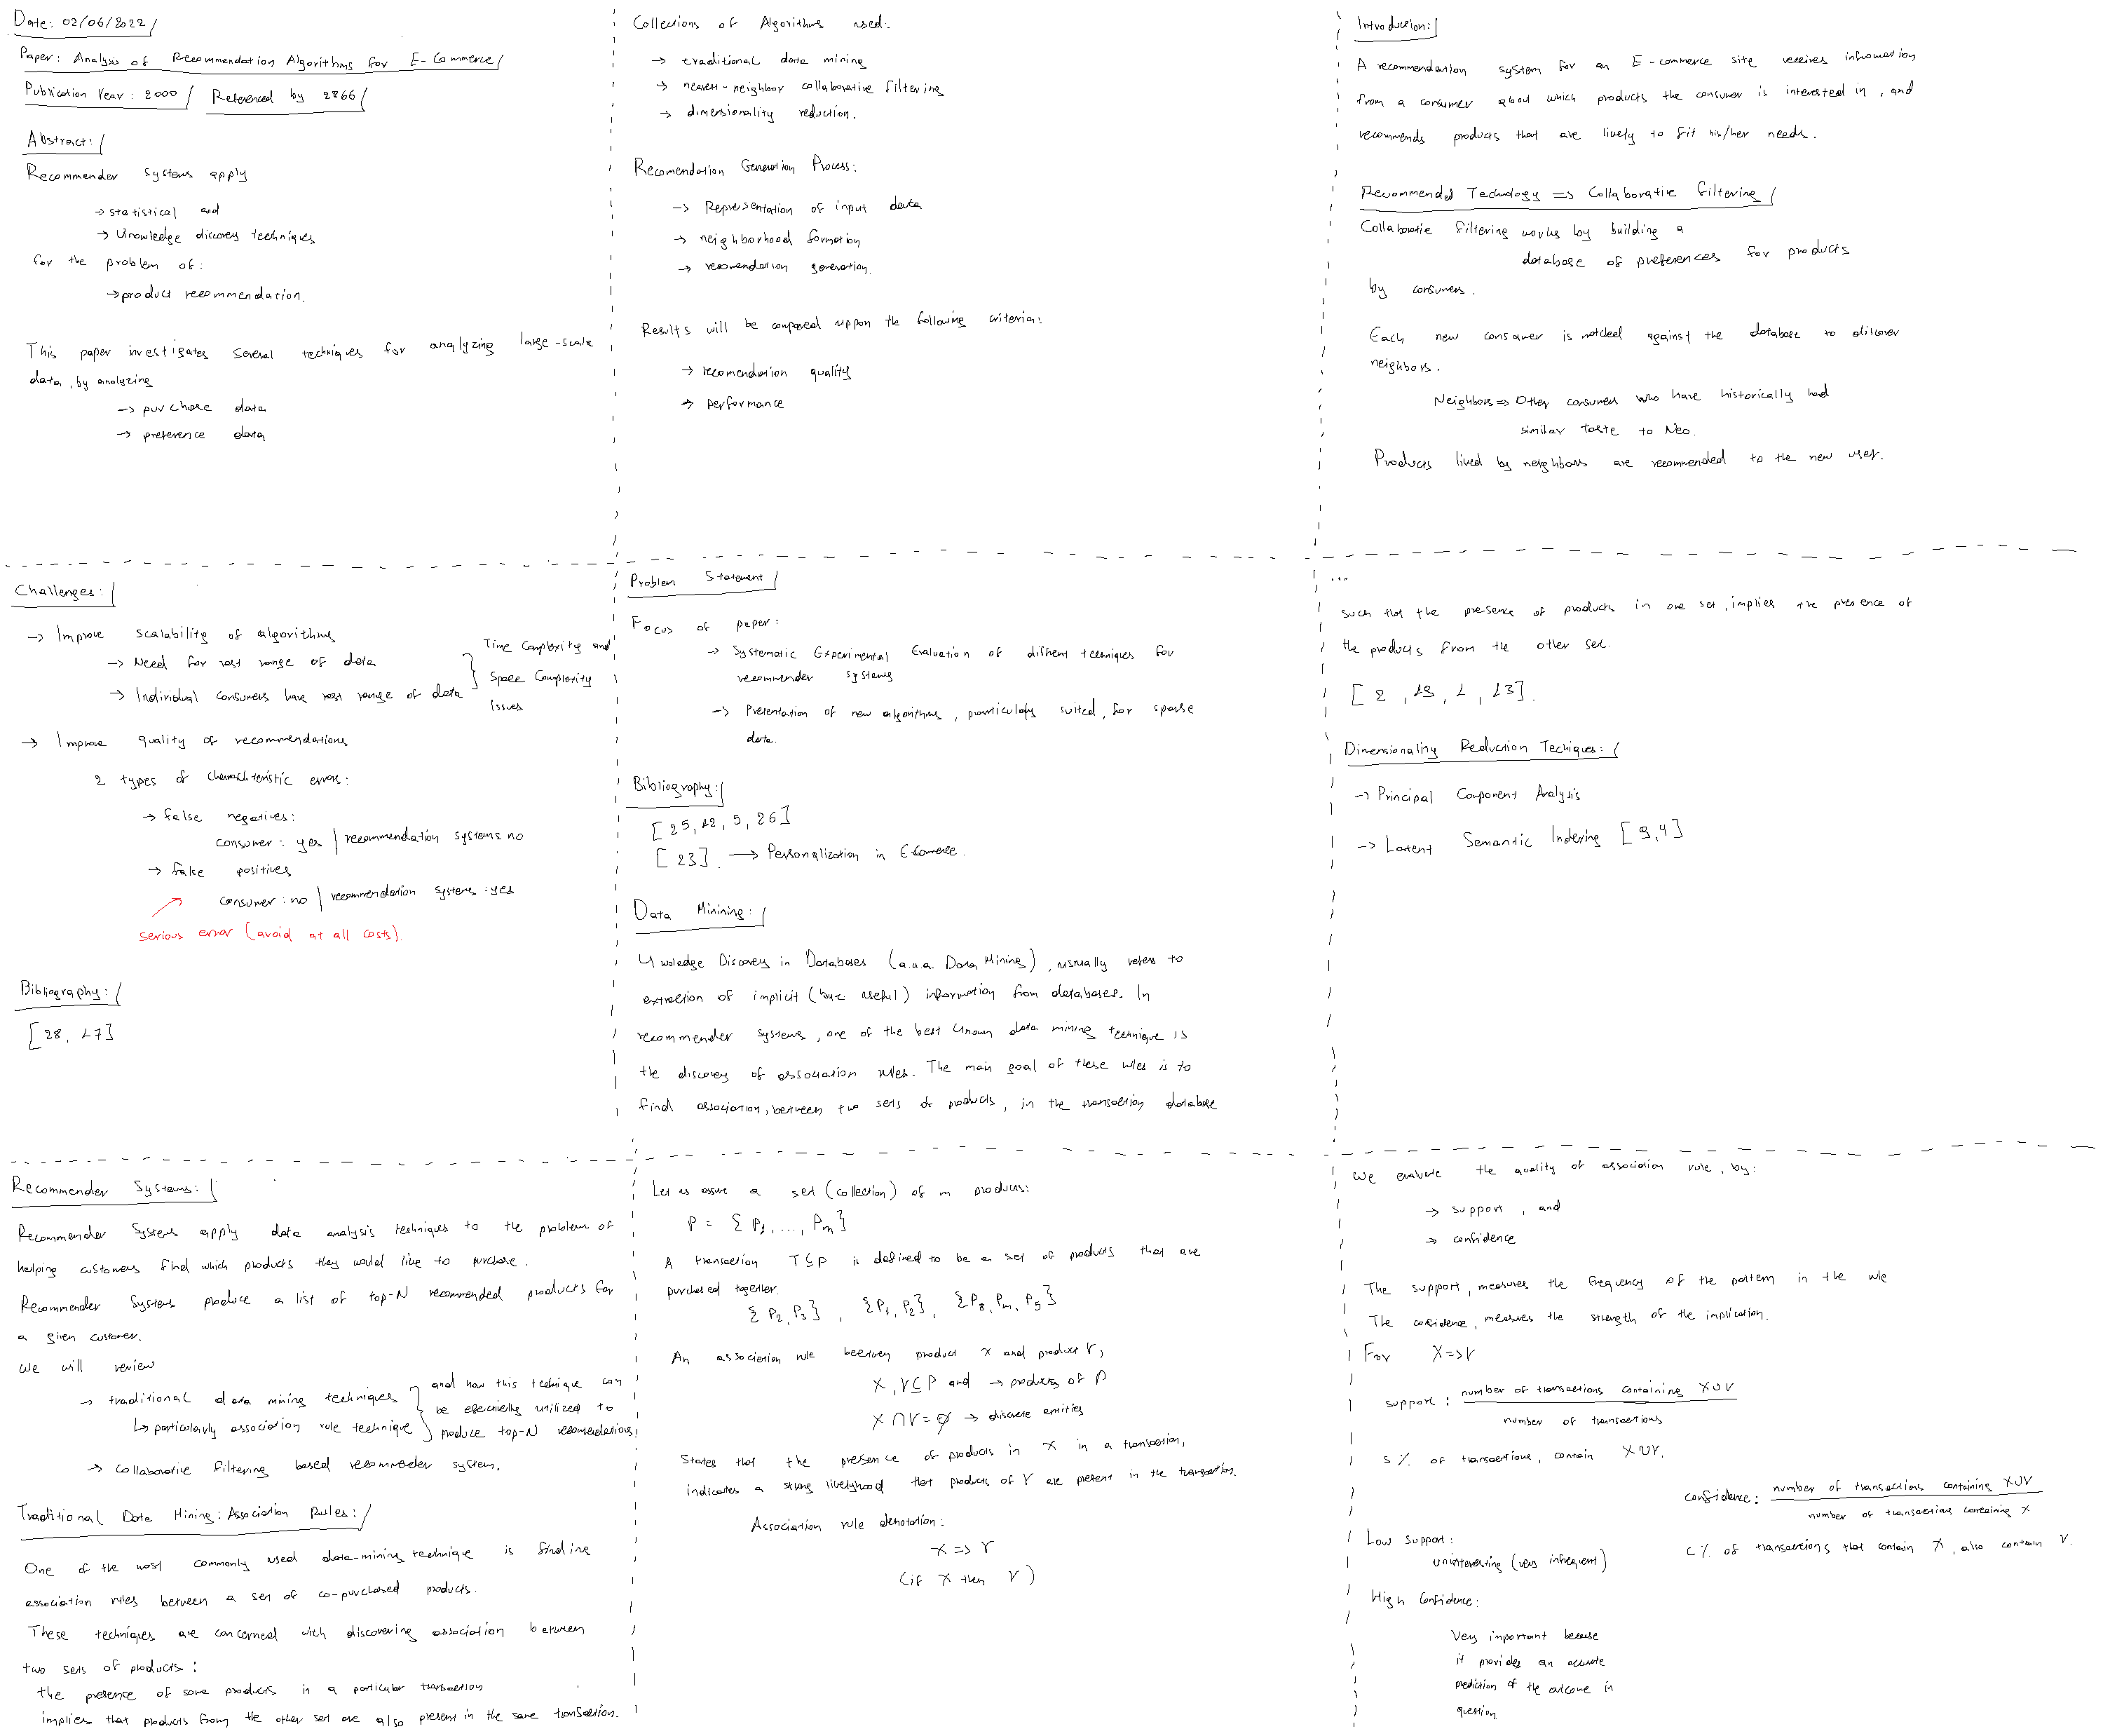 Date: 02/06/2022
Paper: Analysis of Recommendation Algorithms for E-Commerce
Publication Year: 2000 Referenced by 2866
Abstract:
Recommender Systems apply
→ statistical and
→ Knowledge discovery techniques
for the problem of:
→ product recommendation.
This paper investigates several techniques for analyzing large-scale
data, by analyzing
→ purchase data
→ preference data
Collections of Algorithms used:
→ traditional data mining
→ nearest-neighbor collaborative filtering
→ dimensionality reduction.
Recomendation Generation Process:
→ Representation of input data
→ neighborhood formation
→ recomendation generation.
Results will be compared uppon the following criteria:
→ recomendation quality
→ performance
Introduction:
A recommendation system for an E-commerce site receives infromation
from a consumer about which products the consumer is interested in, and
recommends products that are likely to fit his/her needs.
Recommended Technology => Collaborative Filtering
Collaborative Filtering works by building a
database of preferences for products
by consumers.
Each new consumer is matched against the database to discover
neighbors.
Neighbors => Other consumers who have historically had
similar taste to Neo.
Products liked by neighbors are recommended to the new user.
Challenges:
→ Improve scalability of algorithms
→ Need for vast range of data
→ Individual consumers have vast range of data
Time Complexity and
Space Complexity
Issues
→ Improve quality of recommendations
2 types of charachteristic errors:
→ false negatives:
consumer: yes | recommendation systems no
→ false positives
consumer: no | recommendation systems: yes
serious error (avoid at all costs).
Bibliography:
[28, 17]
Problem Statement
Focus of paper:
→ Systematic Experimental Evaluation of different techniques for
recommender systems
→ Presentation of new algorithms, particulary suited, for sparse
data.
Bibliography:
[25, 12, 9, 26]
[23]. → Personalization in E-Commerce.
Data Minining:
Knoledge Discovery in Databases (a.k.a. Data Mining), usually refers to
extraction of implicit (but useful) information from databases. In
recommender systems, one of the best known data mining technique is
the discovery of association rules. The main goal of these rules is to
find association, between two sets of products, in the transaction database
...
such that the presence of products in one set, implies the presence of
the products from the other set.
[2, 19, 1, 13].
Dimensionality Reduction Techiques:
→ Principal Component Analysis
→ Latent Semantic Indexing [9,4]
Recommender Systems:
Recommender Systems apply data analysis techniques to the problem of
helping customers find which products they would like to purchase.
Recommender Systems produce a list of top-N recommended products for
a given customer.
We will review
→ traditional data mining techniques
↳ particularly association rule technique
and how this technique can
be efectively utilized to
produce top-N recomendations
→ Collaborative filtering based recommeder system.
Traditional Data Mining: Association Rules:
One of the most commonly used data-mining technique is finding
association rules between a set of co-purchased products.
These techniques are concerned with discovering association between
two sets of products:
the presence of some products in a particular transaction
implies that products from the other set are also present in the same transaction.
Let us assume a set (collection) of m products:
P = {P₁, ..., Pₘ}
A transaction T⊆P is defined to be a set of products that are
purchased together.
{P₂, P₃}, {P₁, P₂}, {P₈, Pₘ, P₅}
An association rule between product X and product Y,
X, Y⊆P and → products of P
X∩Y=∅ → discrete entities
States that the presence of products in X in a transaction,
indicates a strong likelyhood that products of Y are present in the transaction.
Association rule denotation:
X => Y
(if X then Y)
We evaluate the quality of association rule, by:
→ support, and
→ confidence
The support, measures the frequency of the pattern in the rule
The confidence, measures the strength of the implication.
For X=>Y
support: number of transactions containing X∪Y
number of transactions
s% of transactions, contain X∪Y.
confidence: number of transactions containing X∪Y
number of transaction containing X
c% of transactions that contain X, also contain Y.
Low Support:
uninteresting (very infrequent)
High Confidence:
Very important because
it provides an accurate
prediction of the outcome in
question